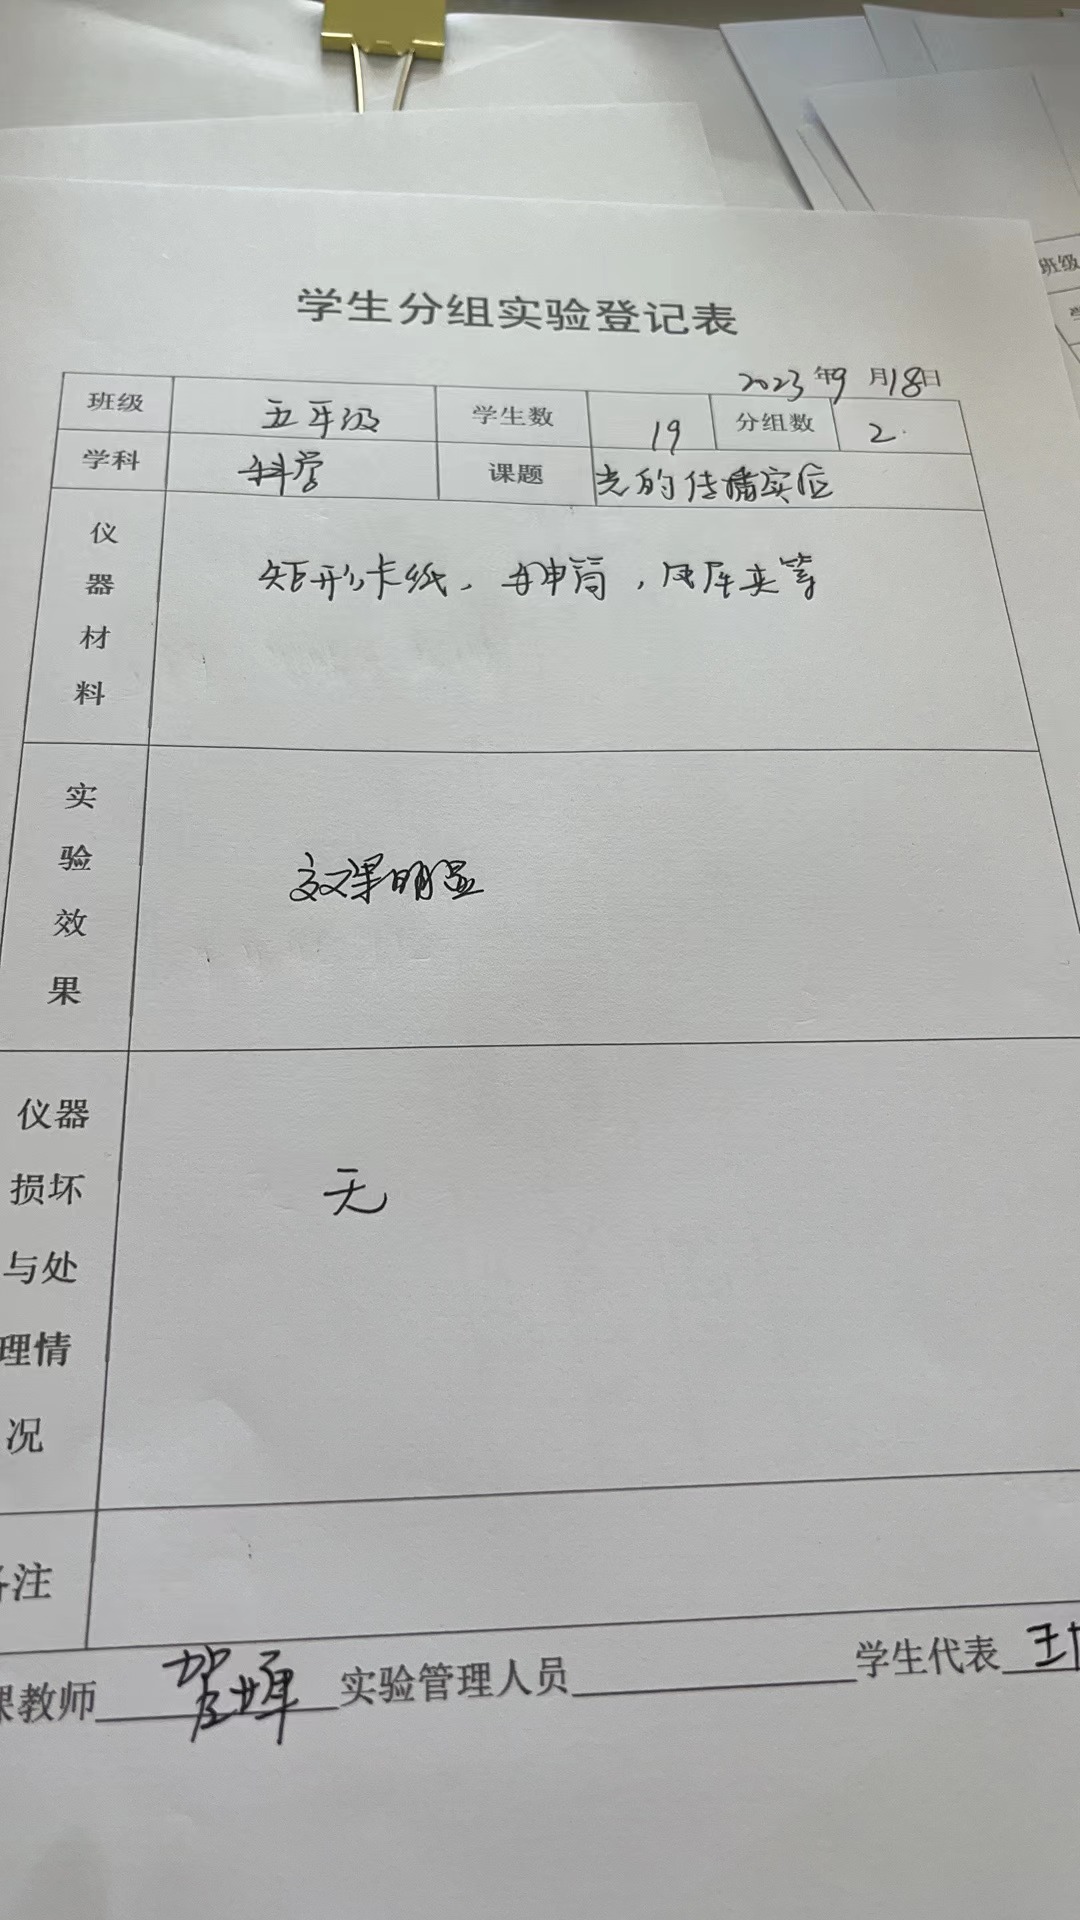 学生分组实验登记表
2023年9月18日
班级 五年级 学生数 19 分组数 2
学科 科学 课题 光的传播实验
仪器材料 矩形卡纸、手电筒,等
实验效果 效果明显
仪器损坏与处理情况 无
注
课教师 贺 实验管理人员 学生代表 王
班级